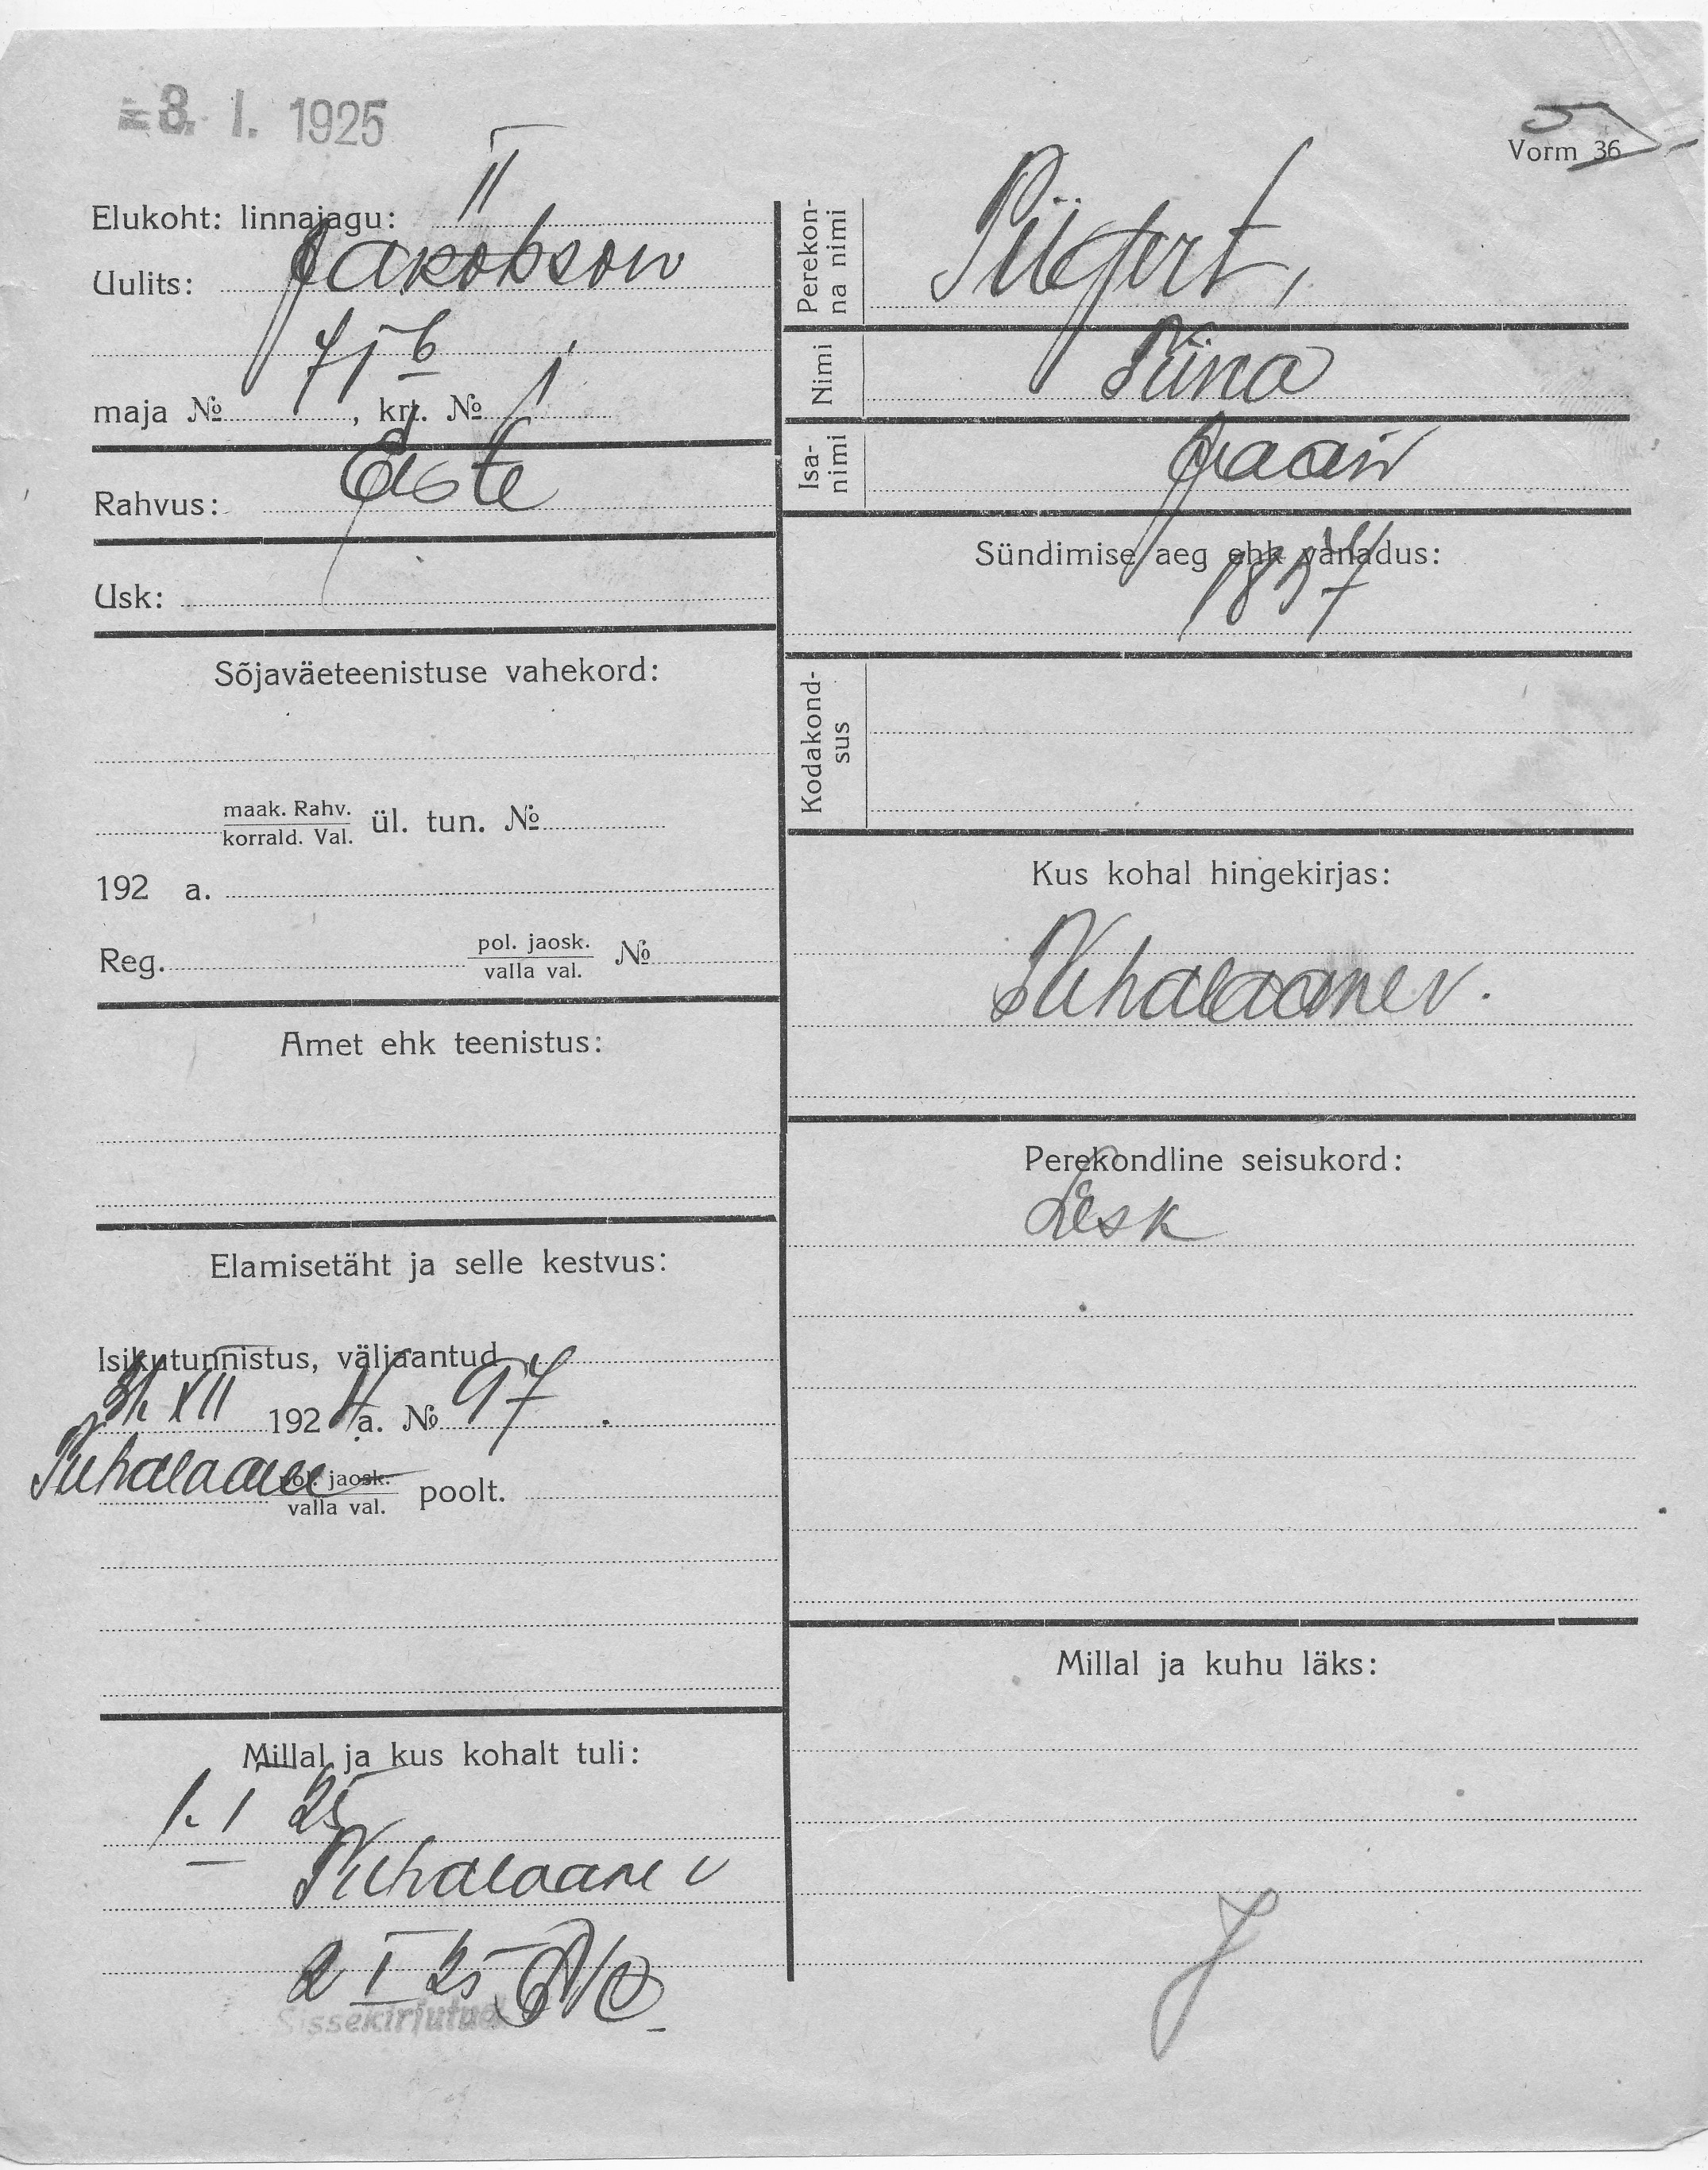 -3. I. 1925
Vorm 36
Elukoht: linnajagu: II
Uulits: Jakobson
75 b
maja №, krt. № 1
Rahvus: Eeste
Usk:
Sõjaväeteenistuse vahekord:
maak. Rahv.
korrald. Val. ül. tun. №
192 a.
Reg. pol. jaosk.
valla val. №
Amet ehk teenistus:
Elamisetäht ja selle kestvus:
Isikutunnistus, väljaantud
31. XII 1924 a. № 97
Puhalaane pol. jaosk.
valla val. poolt.
Millal ja kus kohalt tuli:
1. I 25
Puhalaane v
2 I 25
Sissekirjutud
Perekon-
na nimi
Nimi Tiina
Isa-
nimi Jaan
Sündimise aeg ehk vanadus:
1857
Kodakond-
sus
Kus kohal hingekirjas:
Puhalaane v.
Perekondline seisukord:
Lesk
Millal ja kuhu läks: